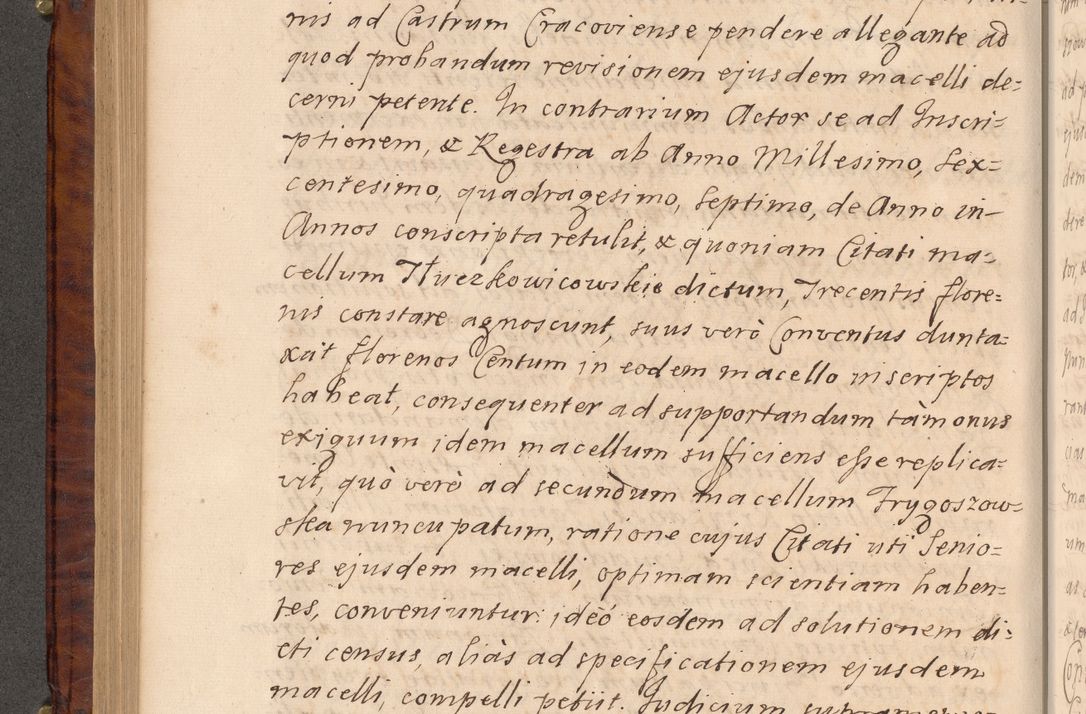 nis ad Castrum Cracoviense pendere allegante ad
quod probandum revisionem ejusdem macelli de=
cerni petente. In contrarium Actor se ad Inscri=
ptionem, & Regestra ab Anno Millesimo, Sex=
centesimo, quadragesimo, Septimo, de Anno in
Annos conscripta retulit, & quoniam Citati ma=
cellum Tłuczkowicowskie dictum, Trecentis flore=
nis constare agnoscunt, suus verò Conventus dunta=
xat florenos Centum in eodem macello inscriptos
habeat, consequenter ad supportandum tàm onus
exiguum idem macellum sufficiens esse replica=
vit, quò verò ad secundum macellum Frygoszow=
ska nuncupatum, ratione cujus Citati uti Senio=
res ejusdem macelli, optimam scientiam haben=
tes, conveniuntur: ideó eosdem ad solutionem di=
cti census, aliàs ad specificationem ejusdem
macelli, compelli petiit. Judicium